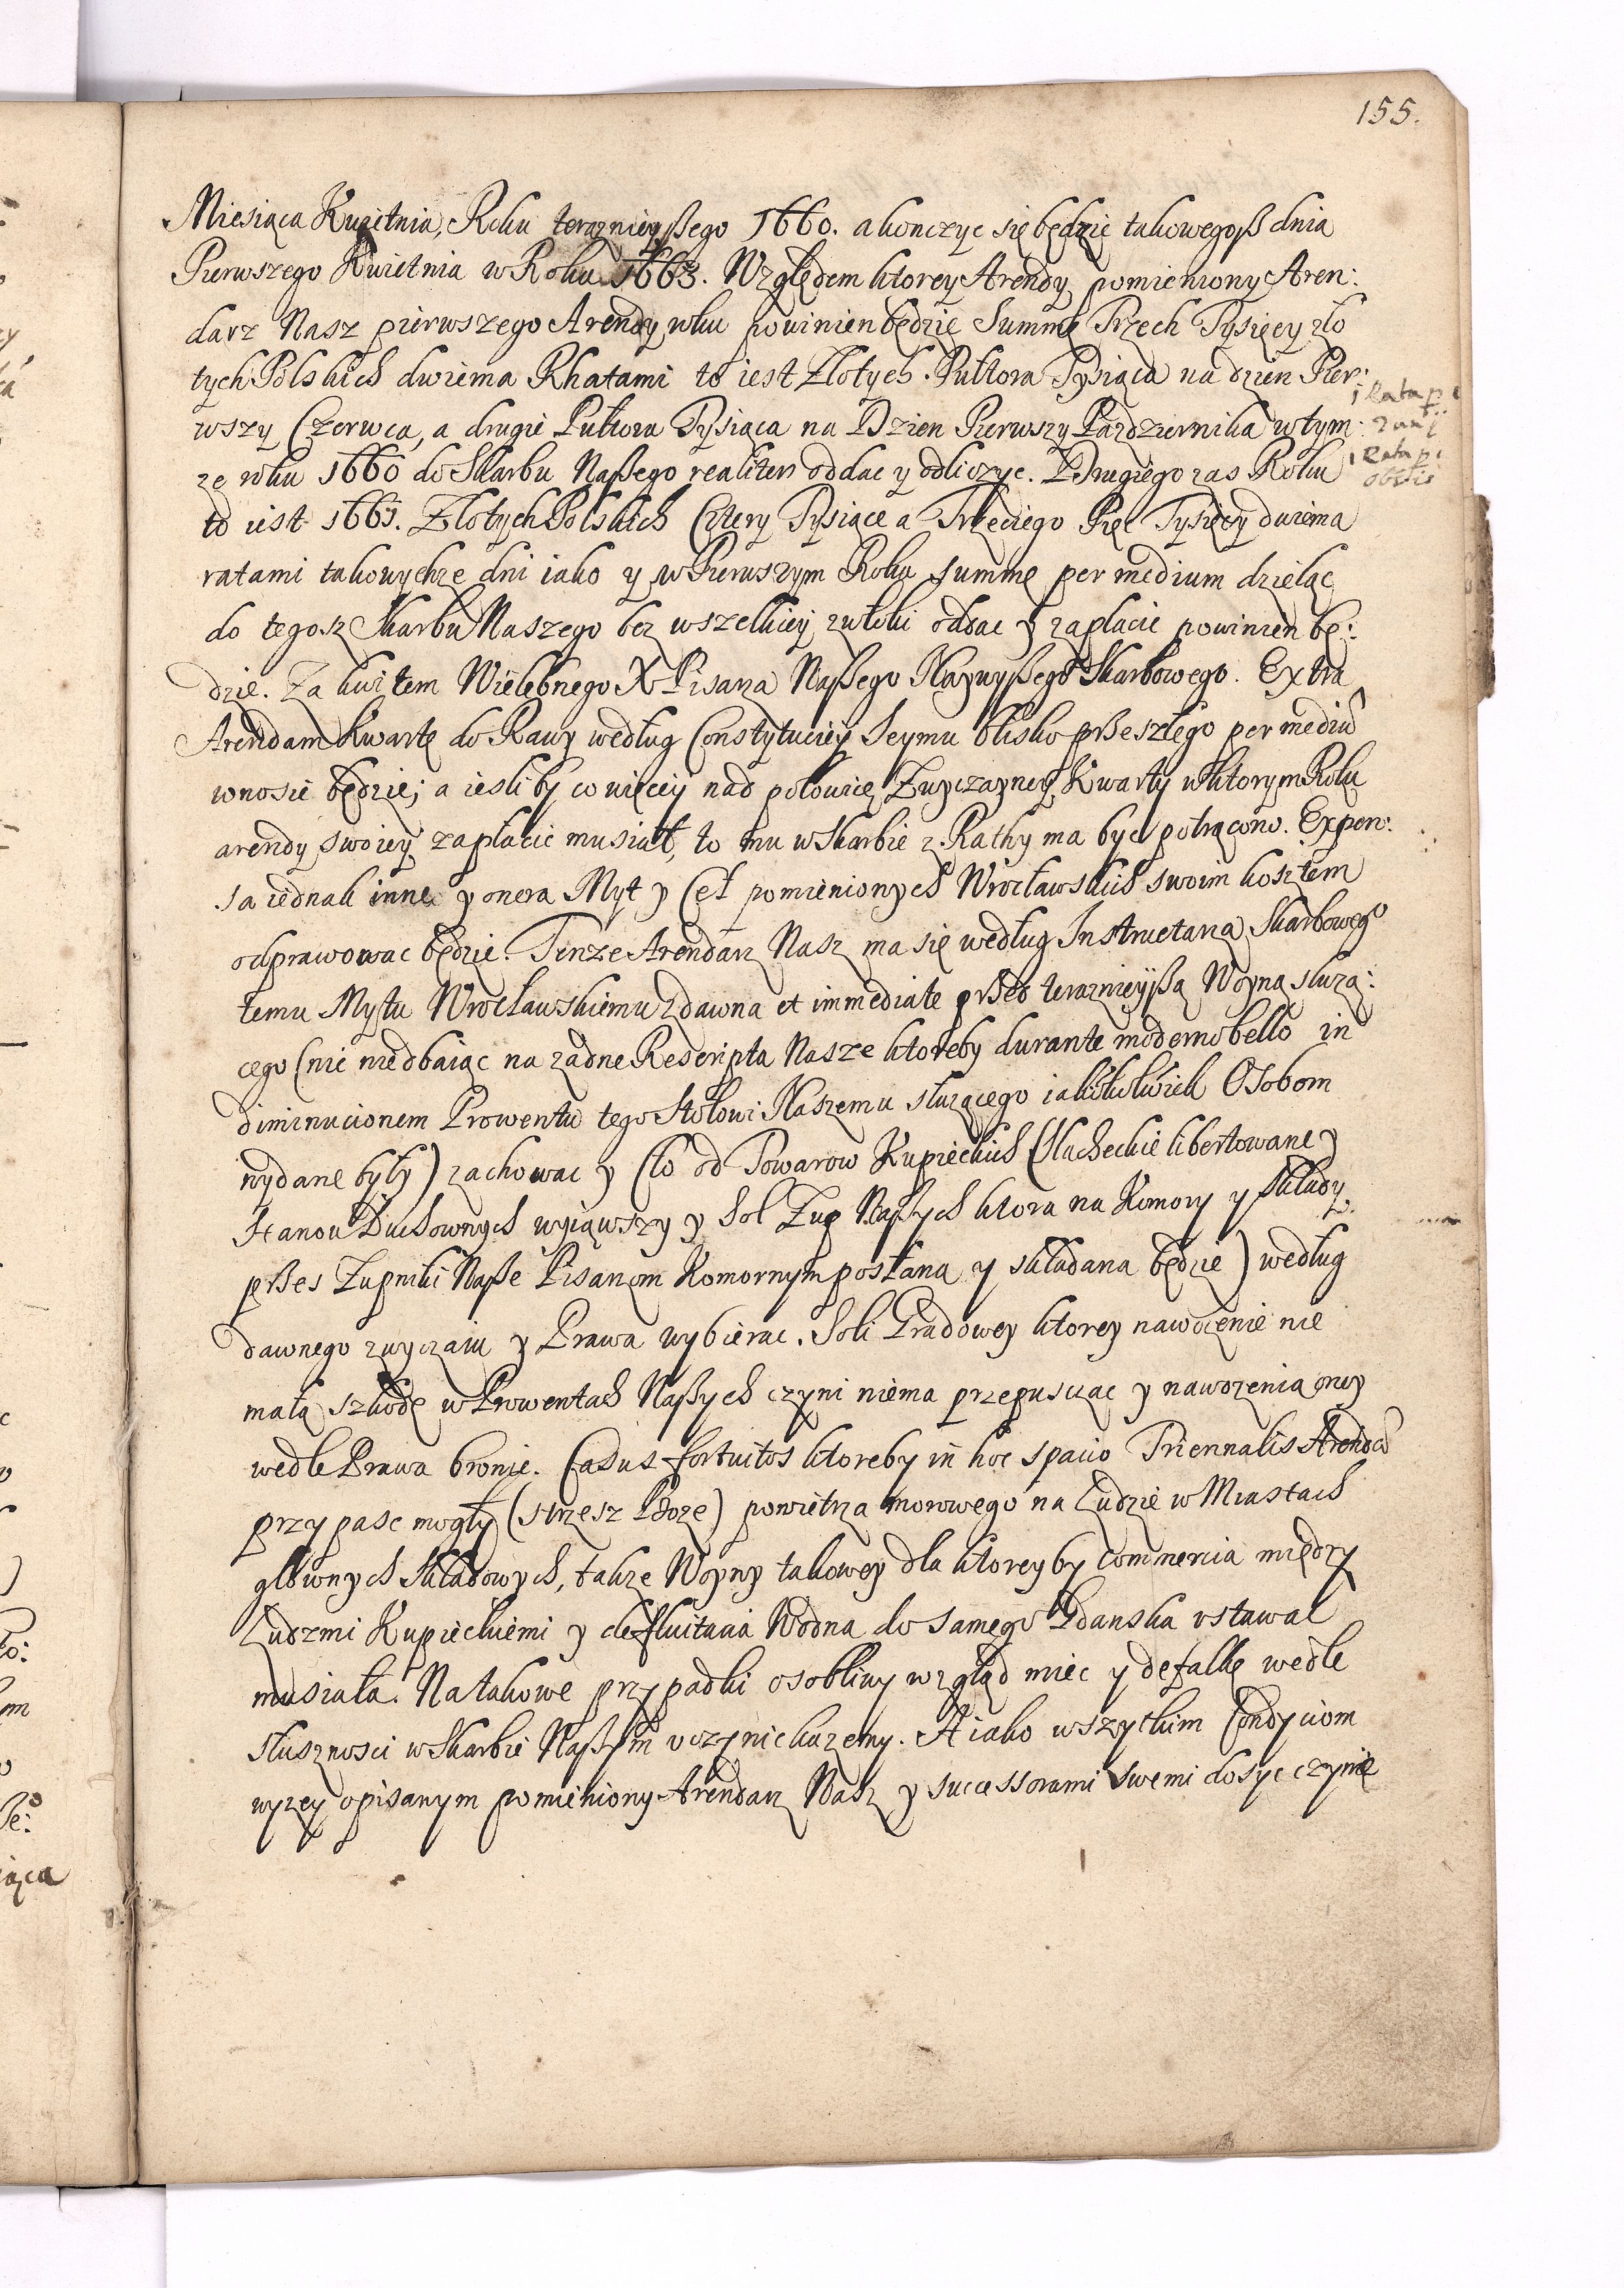 155.
Miesiąca Kwietnia, Roku teraznieyßego 1660. a konczyc się będzie takowegoß dnia
Pierwszego Kwietnia w Roku 1663. Względem ktorey Arendy pomieniony Aren:
darz Nasz pierwszego Arendy roku powinien będzie Summę Trzech Tysięcy zło
tych Polskich dwiema Rhatami to iest Złotych Pułtora Tysiąca na dzien Pier:
wszy Czerwca, a drugie Pułtora Tysiąca na Dzien Pierwszy Pazdziernika w tym:
ze roku 1660 do Skarbu Naßego realiter oddac y odliczyc. Drugiego zas Roku
to iest 1661. Złotych Polskich Cztery Tysiące a Trzeciego Pięc Tysięcy dwiema
ratami takowychze dni iako y w Pierwszym Roku summę per medium dzieląc
do tegosz Skarbu Naszego bez wszelkiey zwłoki oddac y zapłacic powinien bę:
dzie. Za kwitem Wielebnego X Pisarza Naßego Naywyßego Skarbowego. Extra
Arendam Kwartę do Rawy według Constytuciey Seymu blisko prßeszłego per mediu
wnosic będzie; a iesliby co więcey nad połowicę Zwyczayney Kwarty w ktorym Roku
arendy swoiey zapłacic musiał, to mu w Skarbie z Rathy ma byc potrącono. Expen:
sa iednak inne y onera Myt y Ceł pomienionych Wrocławskich swoim kosztem
odprawowac będzie. Tenze Arendarz Nasz ma się według Instructarza Skarbowego
temu Mytu Wrocławskiemu zdawna et immediate prßed teraznieyßą Woyną słuzą:
cego (nic niedbaiąc na zadne Rescripta Nasze ktoreby durante moderno bello in
diminucionem Prowentu tego Stołowi Naszemu słuzącego iakimkolwiek Osobom
wydane były) zachowac y Cło od Towarow Kupieckich (Slacheckie libertowane y
Stanow Duchownych wyiąwszy y Sol Zup Naßych ktora na Komory y składy
prßes Zupniki Naße Pisarzom Komornym posłana y składana będzie) według
dawnego zwyczaiu y Prawa wybierac. Soli Pradowey ktorey nawozenie nie
małą szkodę w Prowentach Naßych czyni niema przepusczac y nawozenia oney
wedle Prawa bronic. Casus fortuitos ktoreby in hoc spacio Triennalis Arendæ
przypasc mogły (strzesz Boze) powietrza morowego na Ludzie w Miastach
głównych składowych, takze Woyny takowey dla ktoreyby commercia między
Ludzmi Kupieckiemi y defluitacia Wodna do samego Gdanska ustawac
musiała. Na takowe przypadki osobliwy wzgląd miec y defalkę wedle
słusznosci w Skarbie Naßym uczynic kazemy. A iako wszytkim Condyciom
wyzey opisanym pomieniony Arendarz Nasz y successorami swemi dosyc czynic